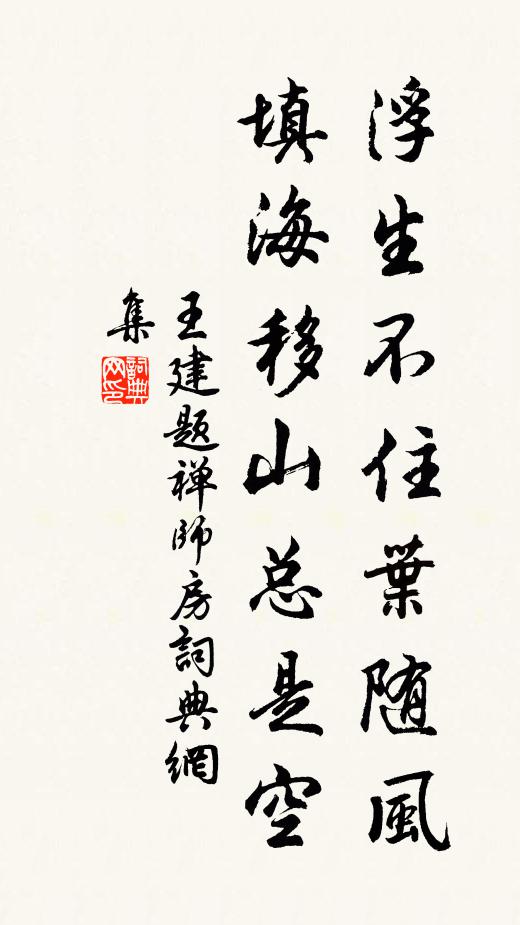 浮生不住葉随風
填海移山总是空
王建题禅师房詞典網
集
詞典
网印